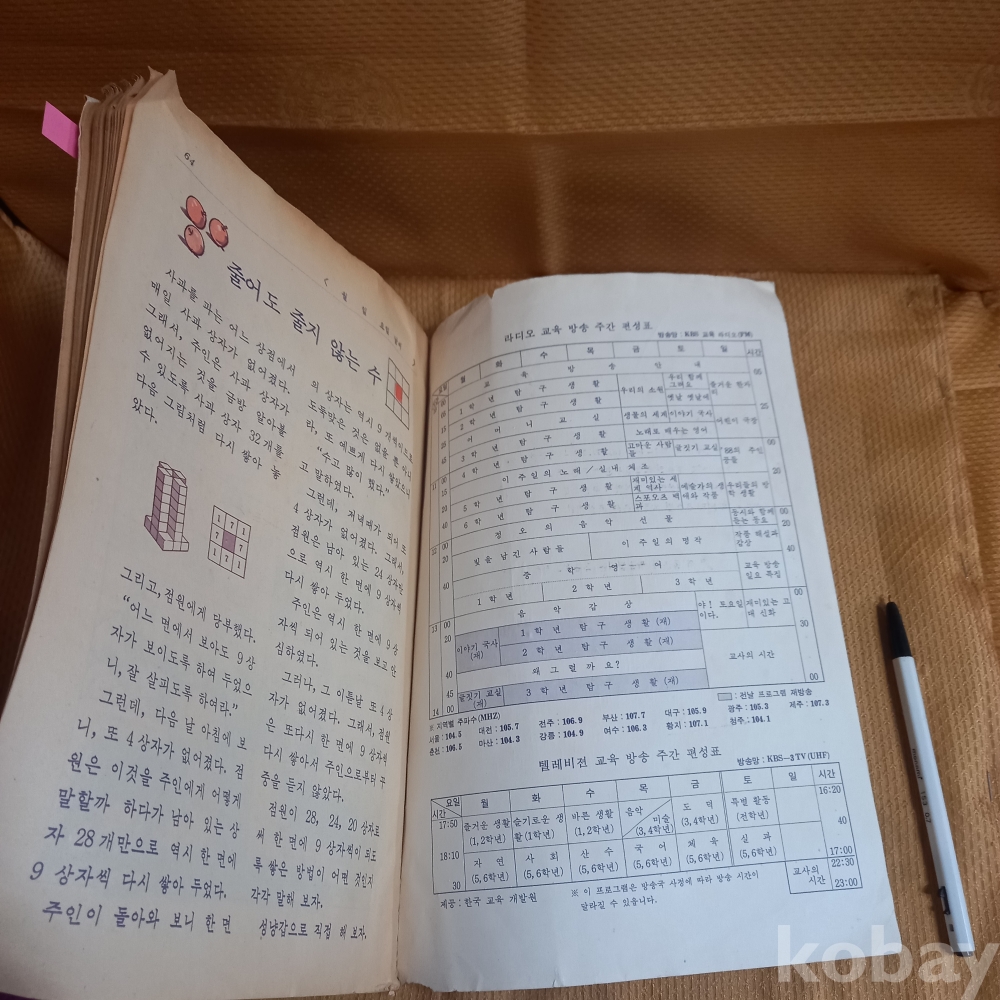 64
줄어도 줄지 않는 수
사과를 파는 어느 상점에서
매일 사과 상자가 없어졌다.
그래서, 주인은 사과 상자가
없어지는 것을 금방 알아볼
수 있도록 사과 상자 32개를
다음 그림처럼 다시 쌓아 놓
았다.
1 7 1
7 7
1 7 1
그리고, 점원에게 당부했다.
“어느 면에서 보아도 9상
자가 보이도록 하여 두었으
니, 잘 살피도록 하여라.”
그런데, 다음 날 아침에 보
니, 또 4상자가 없어졌다. 점
원은 이것을 주인에게 어떻게
말할까 하다가 남아 있는 상
자 28개만으로 역시 한 면에
9 상자씩 다시 쌓아 두었다.
주인이 돌아와 보니 한 면
의 상자는 역시 9개씩이므로
도둑맞은 것은 없을 뿐 아니
라, 또 예쁘게 다시 쌓았으니
“수고 많이 했다.”
고 말하였다.
그런데, 저녁때가 되어 또
4상자가 없어졌다. 그래서,
점원은 남아 있는 24상자만
으로 역시 한 면에 9상자씩
다시 쌓아 두었다.
주인은 역시 한 면에 9상
자씩 되어 있는 것을 보고 안
심하였다.
그러나, 그 이튿날 또 4상
자가 없어졌다. 그래서, 점원
은 또다시 한 면에 9상자씩
다시 쌓아서 주인으로부터 꾸
중을 듣지 않았다.
점원이 28, 24, 20 상자로
써 한 면에 9상자씩이 되도
록 쌓은 방법이 어떤 것인지
각각 말해 보자.
성냥갑으로 직접 해 보자.
라디오 교육 방송 주간 편성표
방송망 : KBS 교육 라디오(FM)
요일 월 화 수 목 금 토 일 시간
교 육 방 송 안 내 05
1 학 년 탐 구 생 활 우리의 소원 우리 함께
2 학 년 탐 구 생 활 옛날 옛날에
어 머 니 교 실 생물의 세계 이야기 국사 어린이 극장 25
3 학 년 탐 구 생 활 노래로 배우는 영어
4 학 년 탐 구 생 활 고마운 사람들 글짓기 교실 00
이 주일의 노래 / 실내 체조
5 학 년 탐 구 생 활 재미있는 세계 역사
6 학 년 탐 구 생 활
정 오 의 음 악 선 물 동시와 함께 듣는 동요 00
20 빛을 남긴 사람들 이 주일의 명작 작품 해설과 감상 20
40 중 학 영 어 교육 방송 일요 특집 40
1 학 년 2 학 년 3 학 년
13 00 음 악 감 상 야! 토요일이다. 재미있는 고대 신화 00
20 이야기 국사(재) 1 학 년 탐 구 생 활 (재) 30
2 학 년 탐 구 생 활 (재) 교사의 시간
40 왜 그 럴 까 요?
45 글짓기 교실(재) 3 학 년 탐 구 생 활 (재)
14 00 00
: 전날 프로그램 재방송
※ 지역별 주파수(MHZ)
서울 : 104.5 대전 : 105.7 전주 : 106.9 부산 : 107.7 대구 : 105.9 광주 : 105.3 제주 : 107.3
춘천 : 106.5 마산 : 104.3 강릉 : 104.9 여수 : 106.3 황지 : 107.1 청주 : 104.1
텔레비젼 교육 방송 주간 편성표
방송망 : KBS-3TV(UHF)
시간 요일 월 화 수 목 금 토 일 시간
17:50 즐거운 생활(1,2학년) 슬기로운 생활(1학년) 바른 생활(1,2학년) 음악 미술(3,4학년) 도 덕(3,4학년) 특별 활동(전학년) 16:20
40
18:10 자 연(5,6학년) 사 회(5,6학년) 산 수(5,6학년) 국 어(5,6학년) 체 육(5,6학년) 실 과(5,6학년) 17:00
30 교사의 시간 22:30
23:00
제공 : 한국 교육 개발원 ※ 이 프로그램은 방송국 사정에 따라 방송 시간이
달라질 수 있읍니다.
kobay